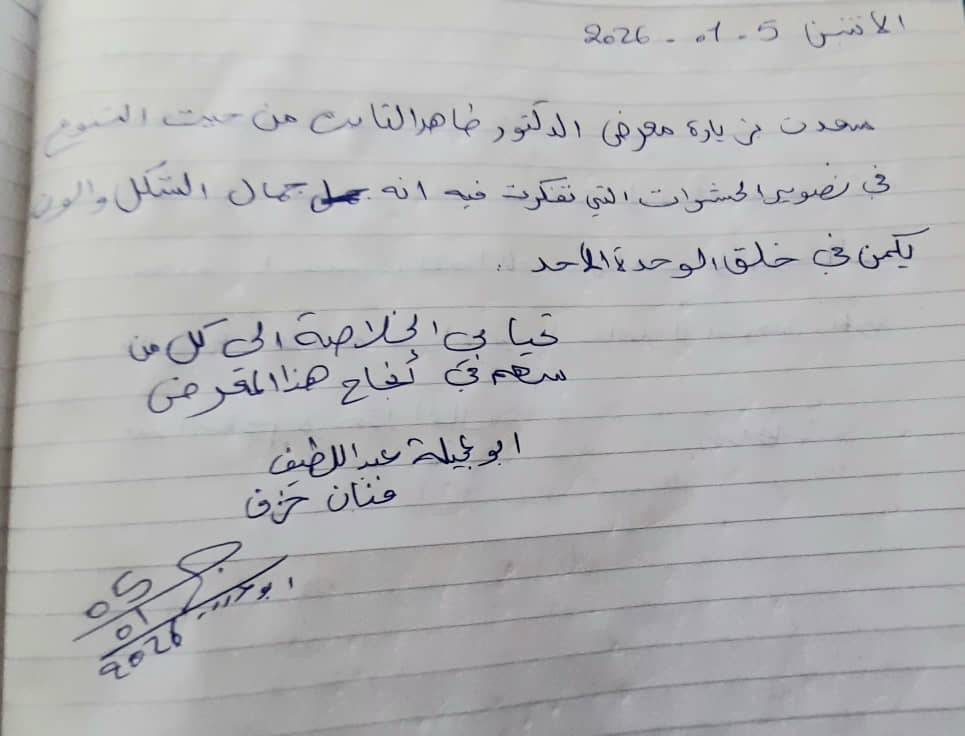 الاثنين 5 - 01 - 2026
سعدت بزيارة معرض الدكتور طاهر الثابت من حيث التنوع
في تصوير الحشرات التي تفكرت فيه انه جمال الشكل والون
يكمن في خلق الوحدة الاحد .
تحياتي الخلاصة الى كل من
سهم في أنجاح هذا المعرض
ابوعجيلة عبد اللطيف
فنان خزف
05
01
2026